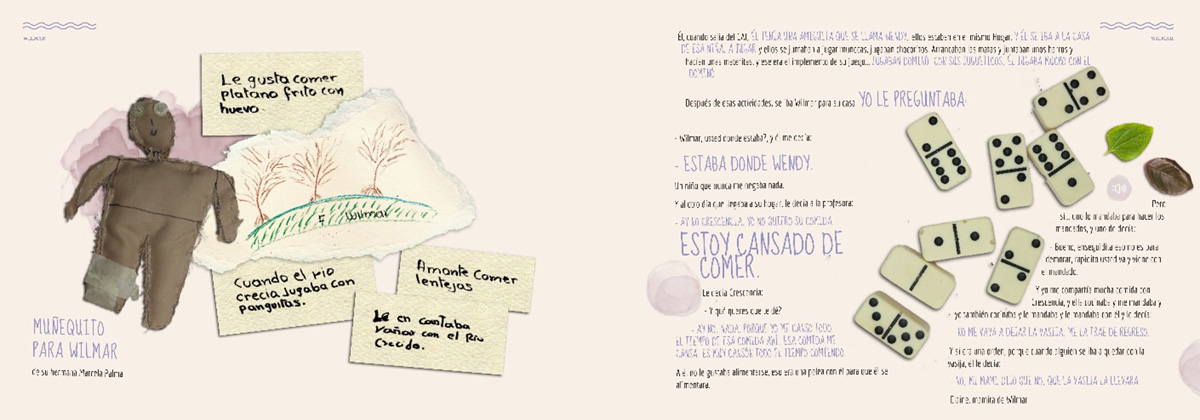 WILMAR
Le gusta comer
platano frito con
huevo.
Wilmar
Cuando el rio
crecia Jugaba con
panguitas.
Amante comer
lentejas
Le encantaba
vañar con el Rio
Crecido.
MUÑEQUITO
PARA WILMAR
de su hermana Marcela Palma
WILMAR
Él, cuando salía del CAI, ÉL TENÍA UNA AMIGUITA QUE SE LLAMA WENDY, ellos estaban en el mismo Hogar. Y ÉL SE IBA A LA CASA
DE ESA NIÑA, A JUGAR y ellos se juntaban a jugar muñecas, jugaban chocoritos. Arrancaban las matas y juntaban unos barros y
hacían unas materitas, y ese era el implemento de su juego... JUGABAN DOMINÓ, CON SUS JUGUETICOS, ÉL JUGABA MUCHO CON EL
DOMINÓ.
Después de esas actividades, se iba Wilmar para su casa YO LE PREGUNTABA:
- Wilmar, usted donde estaba?, y él me decía:
- ESTABA DONDE WENDY.
Un niño que nunca me negaba nada.
Y al otro día que llegaba a su hogar, le decía a la profesora:
- AY NO CRESCENCIA, YO NO QUIERO SU COMIDA
ESTOY CANSADO DE
COMER.
Le decía Crescencia:
- Y qué quieres que te dé?
- AY NO, NADA, PORQUE YO ME CANSO TODO
EL TIEMPO DE ESA COMIDA AQUÍ, ESA COMIDA ME
CANSA, ES MUY CANSÓN TODO EL TIEMPO COMIENDO
A él no le gustaba alimentarse, eso era una pelea con él para que él se
alimentara.
Pero
sí... uno lo mandaba para hacer los
mandados, y uno le decía:
- Bueno, enseguidita eso no es para
demorar, rapidito usted va y viene con
el mandado.
Y yo me compartía mucha comida con
Crescencia, y ella cocinaba y me mandaba y
yo también cocinaba y le mandaba y le mandaba con él y le decía:
NO ME VAYA A DEJAR LA VASIJA, ME LA TRAE DE REGRESO.
Y sí era una orden, porque cuando alguien se iba a quedar con la
vasija, él le decía:
- NO, MI MAMI DIJO QUE NO, QUE LA VASIJA LA LLEVARA
mamita de Wilmar